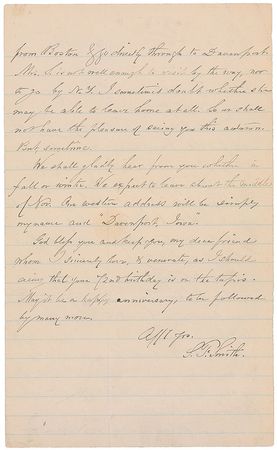 from Boston & go directly through to Davenport.
Mrs. S. is not well enough to visit by the way, nor
to go by N.Y. I sometimes doubt whether she
may be able to leave home at all. So we shall
not have the pleasure of seeing you this autumn.
But sometime.
We shall gladly hear from you whether in
fall or winter. We expect to leave about the middle
of Nov. Our western address will be simply
my name and "Davenport, Iowa."
"God bless you and keep you, my dear friend
whom I sincerely love, & venerate, as I should
seeing that your 72nd birthday is on the tapis.
May it be a happy anniversary, to be followed
by many more.
Aff'y yrs.
S. F. Smith.